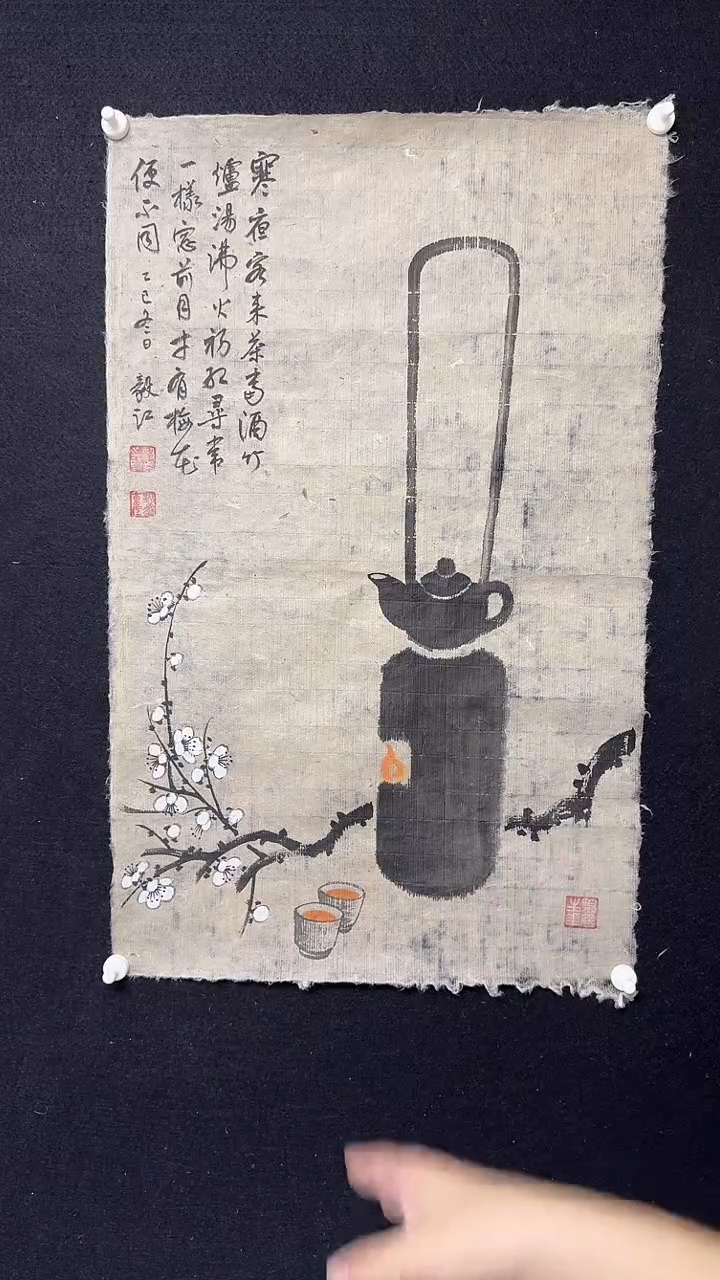 寒夜客来茶當酒竹
爐湯沸火初红尋常
一樣窓前月才有梅花
便不同 乙巳冬日 毅江